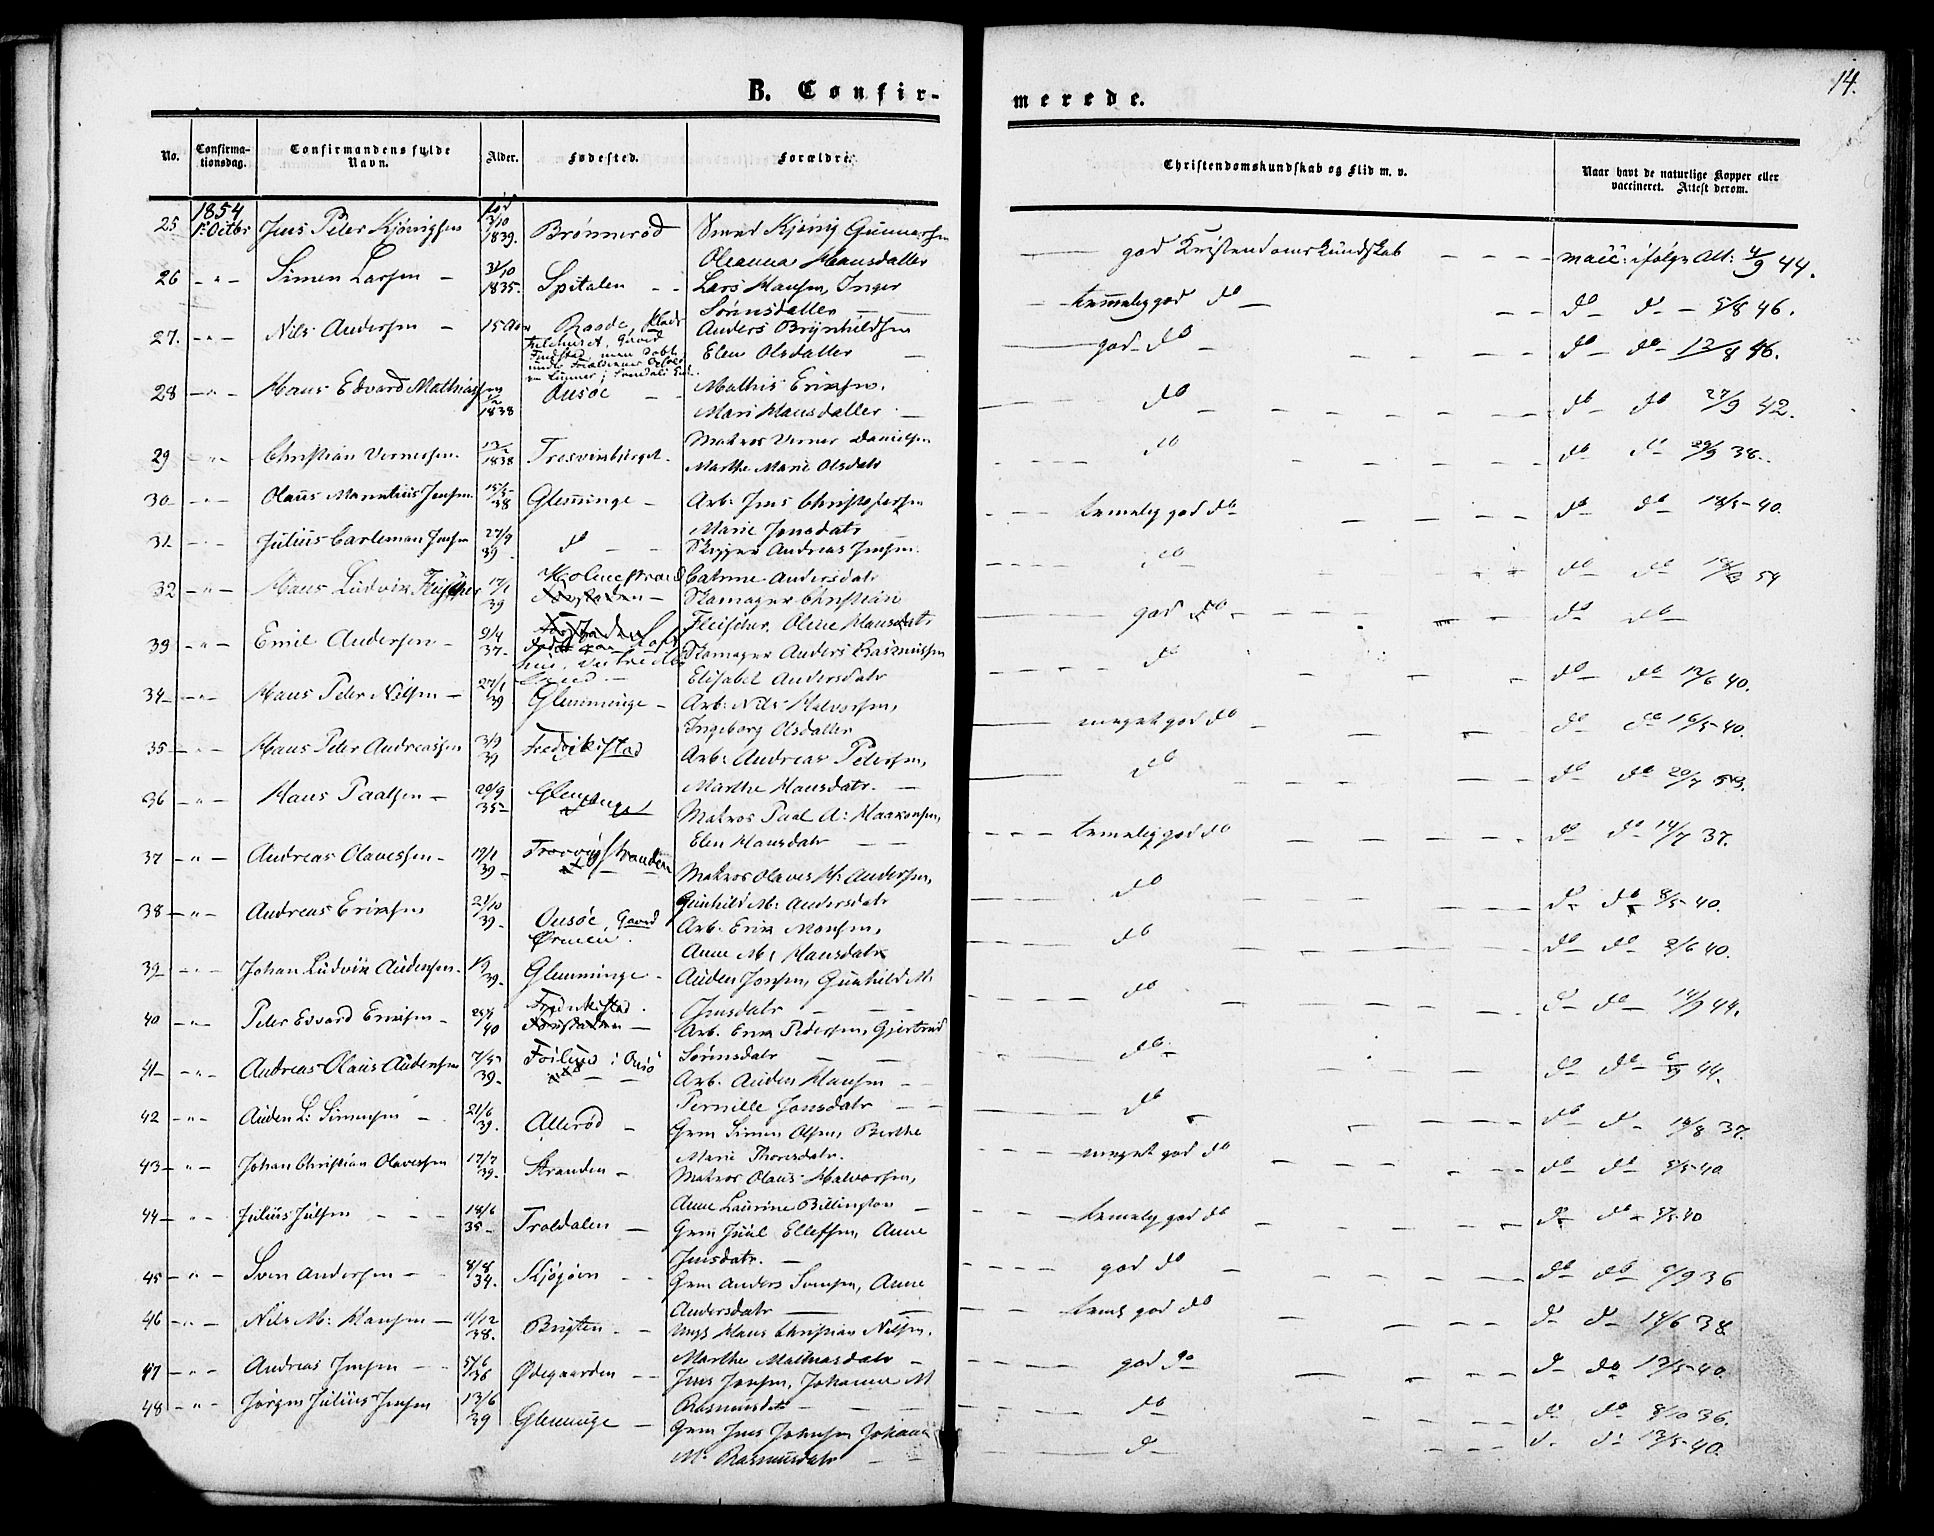 14.
B. Confir-
merede.
No.
Confirma-
tionsdag.
Confirmandens fulde
Navn.
Alder.
Fødested.
Forældre.
Christendomskundskab og Flid m. v.
Naar havt de naturlige Kopper eller
vaccineret. Attest derom.
1854
25 1ste Octbr Jens Peter 3/10 1839. Brønnerød Gunnarsen
Oleanna Hansdatter
god Kristendomskundskab vacc: ifølge Att: 4/9 44.
26 -"- Simen Larsen - 31/10 1835. Spitalen - - Lars Hansen, Inger
Sørnsdatter
temmelig god do - do do - 5/8 46.
27. -"- Nils Andersen - 15 Aar Raade, Anders Brynhildsen
Elen Olsdatter
god do do - do - 12/8 46.
28 -"- Hans Edvard Mathiasen 1838 Onsøe - - Mathis Eriksen.
Mari Hansdatter
do do - do 27/9 42.
29 -"- Christian Vernersen. 1838 Matros Verner Danielsen
Marthe Marie Olsdatr
do do do 29/9 38.
30 -"- Olaus Jensen. 15/5 38 Glemminge - Arb: Jens Christophersen
Marie Jonsdatr
temelig god do do do - 18/5 40.
31 -"- Julius Carleman Jensen 27/9 39 do - - Skipper Andreas Jensen.
Catrine Andersdatr
do do do 54
32 -"- Hans Ludvik Fleischer 17/1 39 Holmestrand Skomager Christian
Fleischer. Oline Hansdatr
god do do do
33 -"- Emil Andersen - 9/4 37 - Skomager Anders Rasmussen
Elisabet Andersdatr
do do do 12/6 40.
34 -"- Hans Peter Nilsen - 27/1 39 Glemminge - Arb: Nils Halvorsen,
Ingeborg Olsdatter
meget god do do do 16/5 40.
35 -"- Hans Peter Andreassen 3/9 39 Fredrikstad Arb: Andreas Petersen,
Marthe Hansdatr.
do do do 20/7 53.
36 -"- Hans Paalsen - 20/9 35 - Matros Paal A: Haakonsen,
Elen Hansdatr
temelig god do do do 14/7 37.
37 -"- Andreas Olavessen - 19/1 39 - Matros Olaves H: Andersen,
Gunhild M: Andersdatr
do do do 8/5 40.
38 -"- Andreas Eriksen 21/10 39. Onsøe, Gaard
Ørmen. Arb. Erik Monsen,
Anne M: Hansdatr
do do do 2/6 40.
39 -"- Johan Ludvik Audensen. 39. Glemminge - Auden Jonsen, Gunhild M:
Jensdatr
do do - do 14/9 44.
40 -"- Peter Edvard Eriksen - 40 Fredrikstad. Arb. Erik Pedersen, Gjertrud
Sørnsdatr
do do - do 44.
41 -"- Andreas Olaus Audensen 7/5 39. i Onsø Arb. Auden Hansen
Pernille Jonsdatr
do do do - 14/8 37.
42 -"- Auden L: Simensen - 21/6 39. Allerød - Grm Simen Olsen, Berthe
Marie Thorsdatr.
meget god do do do 5/5 40
43 -"- Johan Christian Olavessen 17/7 39. Stranden - Matros Olaus Halvorsen,
Anne Laurine Billington
temelig god do do do 40
44 -"- Julius Julsen 18/6 35 - Troldalen - Grm Juul Ellefsen, Anne
Jensdatr.
god do do do 9/9 36
45 -"- Sven Andersen - 8/8 34. Grm Anders Svensen, Anne
Andersdatr
temel god do do do 14/6 38
46 -"- Nils M: Hansen - 11/12 38. Brigten. - Hans Christian Nilsen.
Marthe Mathiasdatr
god do do do 13/5 40.
47 -"- Andreas Jensen 5/6 36 Ødegaarden - - Jens Jensen, Johanne M
Rasmusdatr
do do do 8/10 36.
48 -"- Jørgen Julius Jensen 13/6 39 Glemmige - Grm Jens Johnsen Johanne
M: Rasmusdatr
do do do 13/5 40.